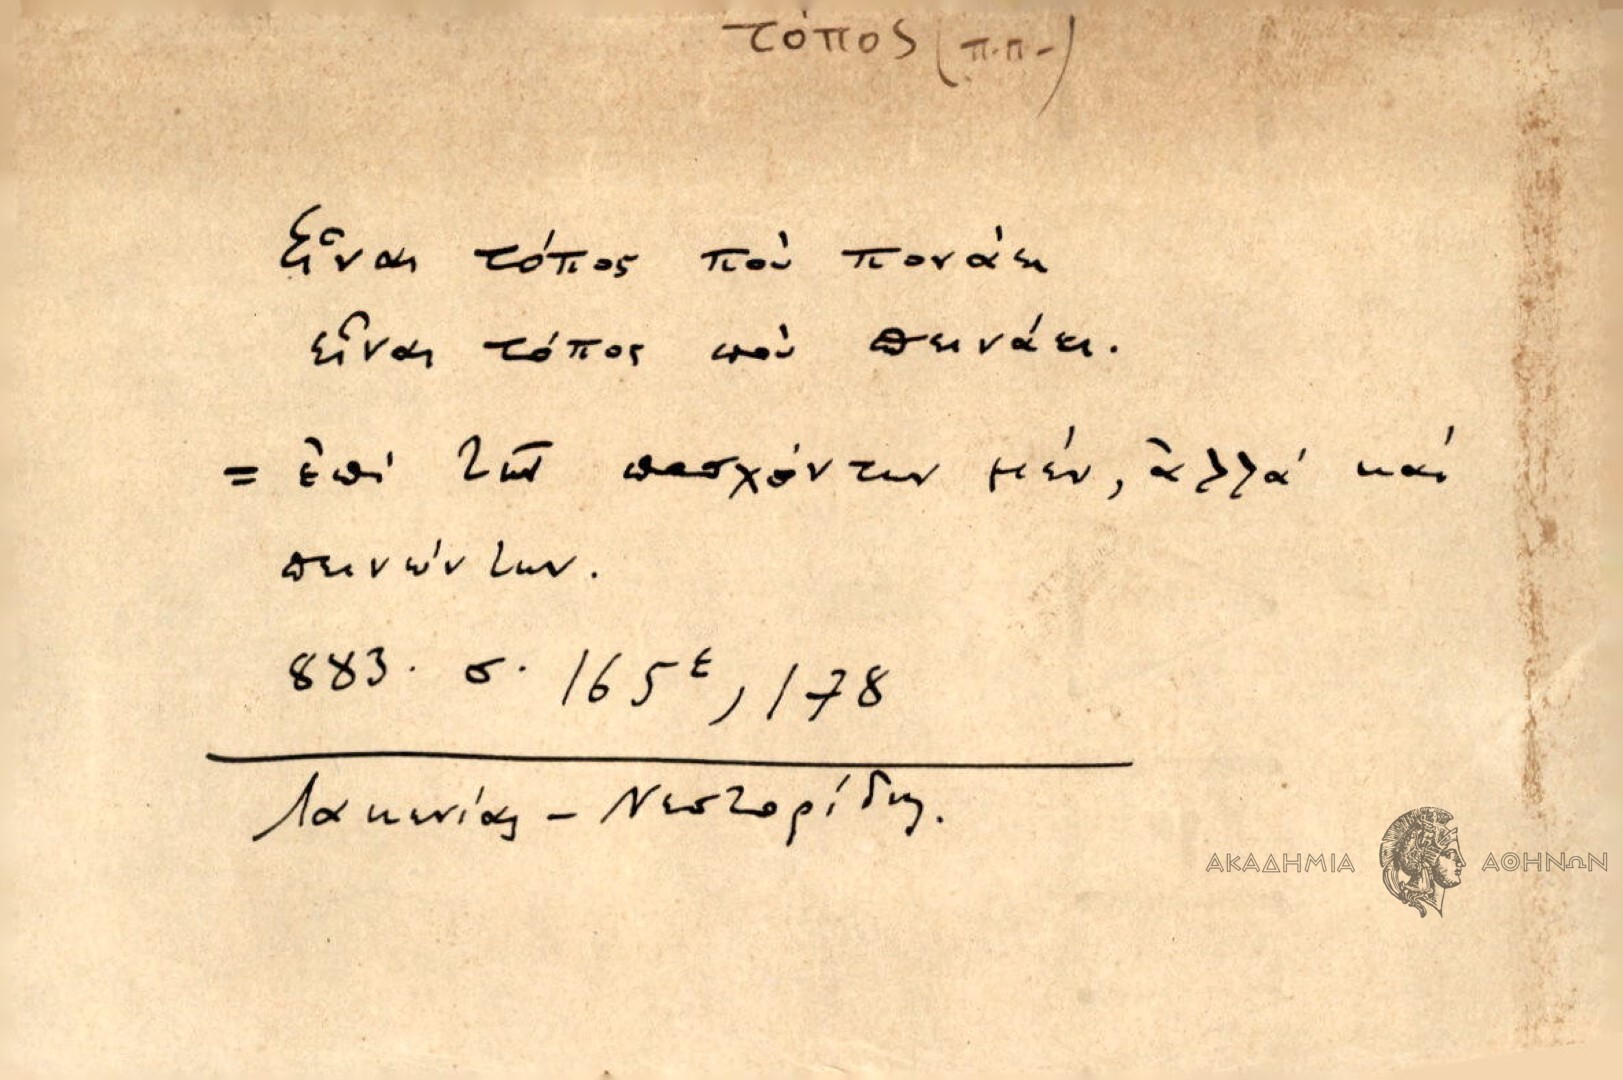 τόπος (π.π-)
Εἶναι τόπος ποὺ πονάει
εἶναι τόπος ποὺ πεινάει.
= ἐπὶ τῶν πασχόντων μέν, ἀλλά καί
πεινώντων.
883. σ. 165ε, 178
Λακωνίας - Νεστορίδης.
ΑΚΑΔΗΜΙΑ ΑΘΗΝΩΝ